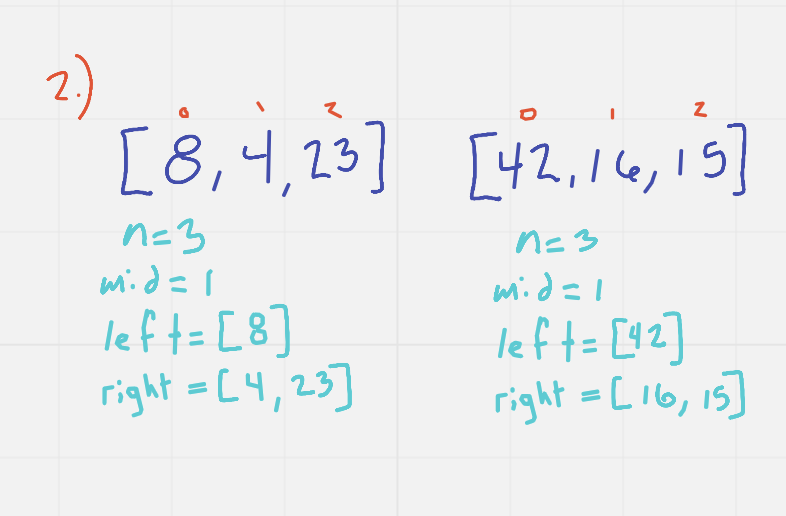 2.)
0 1 2
[8, 4, 23]
n=3
mid=1
left=[8]
right=[4, 23]
0 1 2
[42, 16, 15]
n=3
mid=1
left=[42]
right=[16, 15]